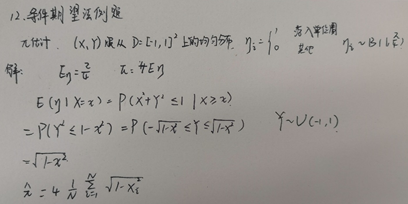 12. 条件期望法例题
π估计. (X,Y) 服从 D=[-1,1]² 上的均匀分布. η_i = { 1 落入单位圆 0 其他 η_i ~ B(1, π/4)
解: Eη = π/4 π = 4Eη
E(η|X=x) = P(X²+Y² ≤ 1 | X=x)
= P(Y² ≤ 1-x²) = P(-√(1-x²) ≤ Y ≤ √(1-x²)) Y~U(-1,1)
= √(1-x²)
π̂ = 4 1/N Σ_{i=1}^{N} √(1-X_i²)